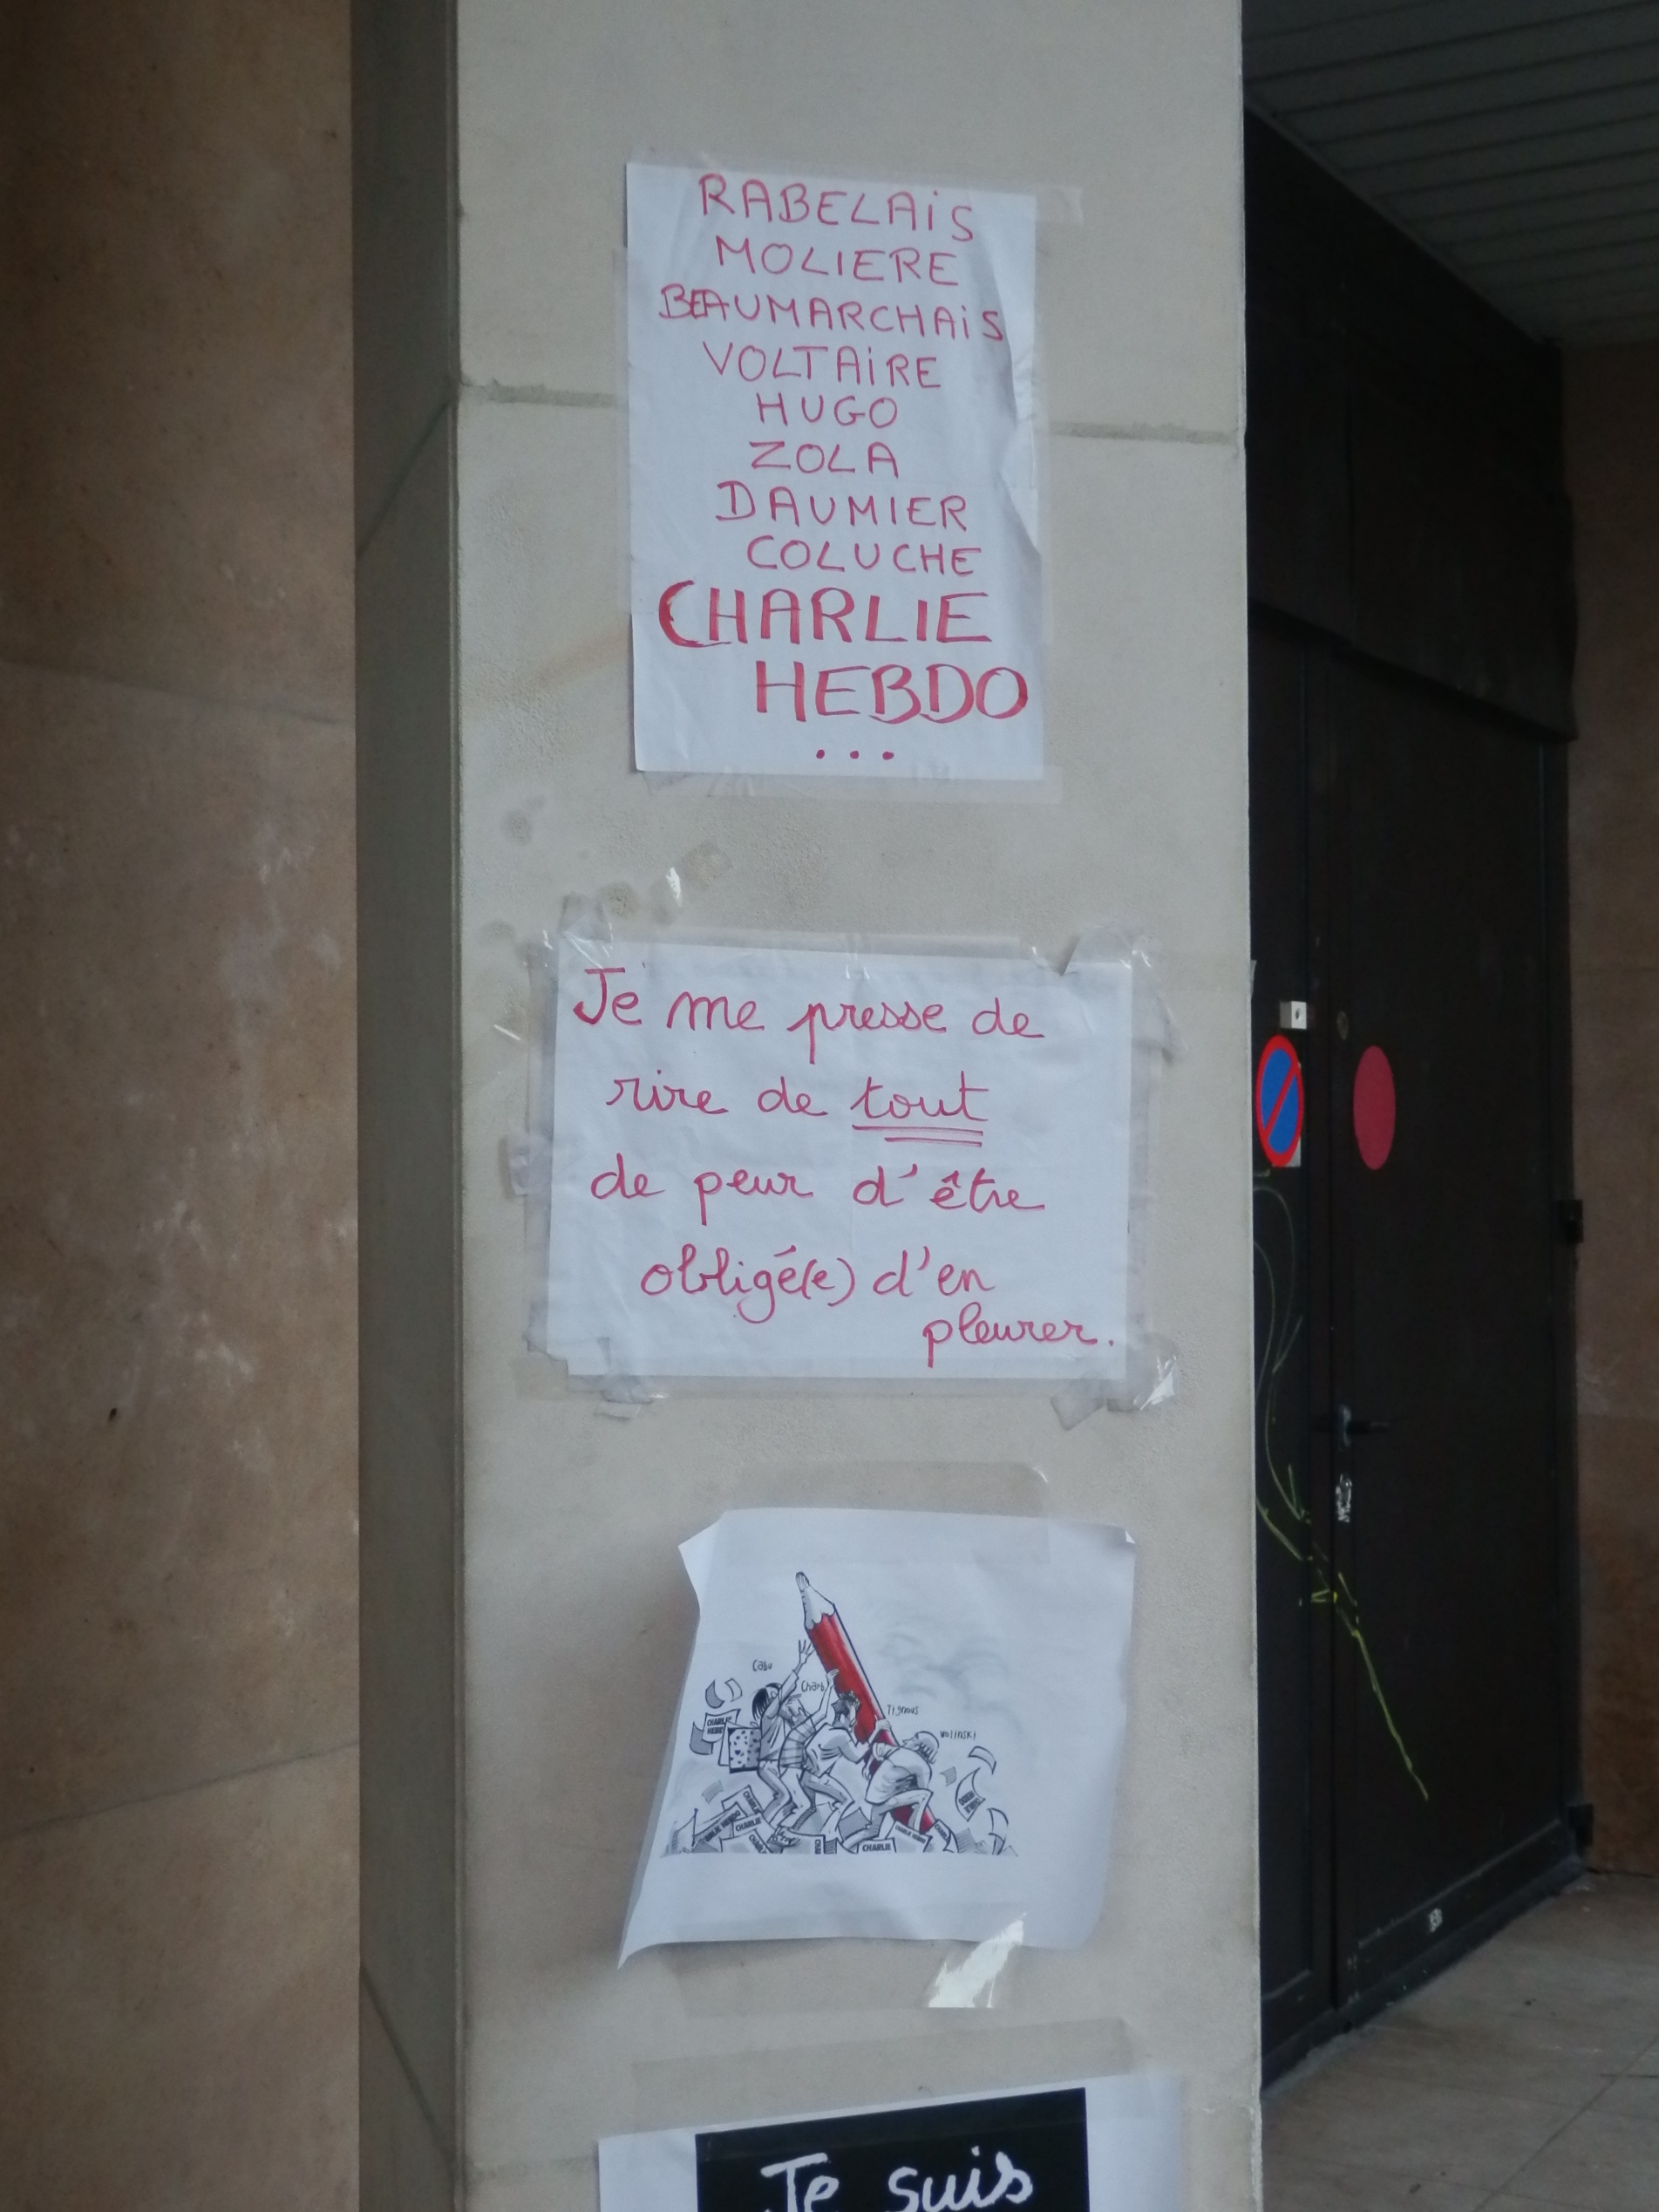 RABELAiS
MOLIERE
BEAUMARCHAiS
VOLTAiRE
HUGO
ZOLA
DAUMIER
COLUCHE
CHARLIE
HEBDO
...
Je me presse de
rire de tout
de peur d'être
obligé(e) d'en
pleurer.
Cabu
Charb
Tignous
Wolinski
CHARLIE
HEBDO
CHARLIE
CHARLIE
CHARLIE
Je suis